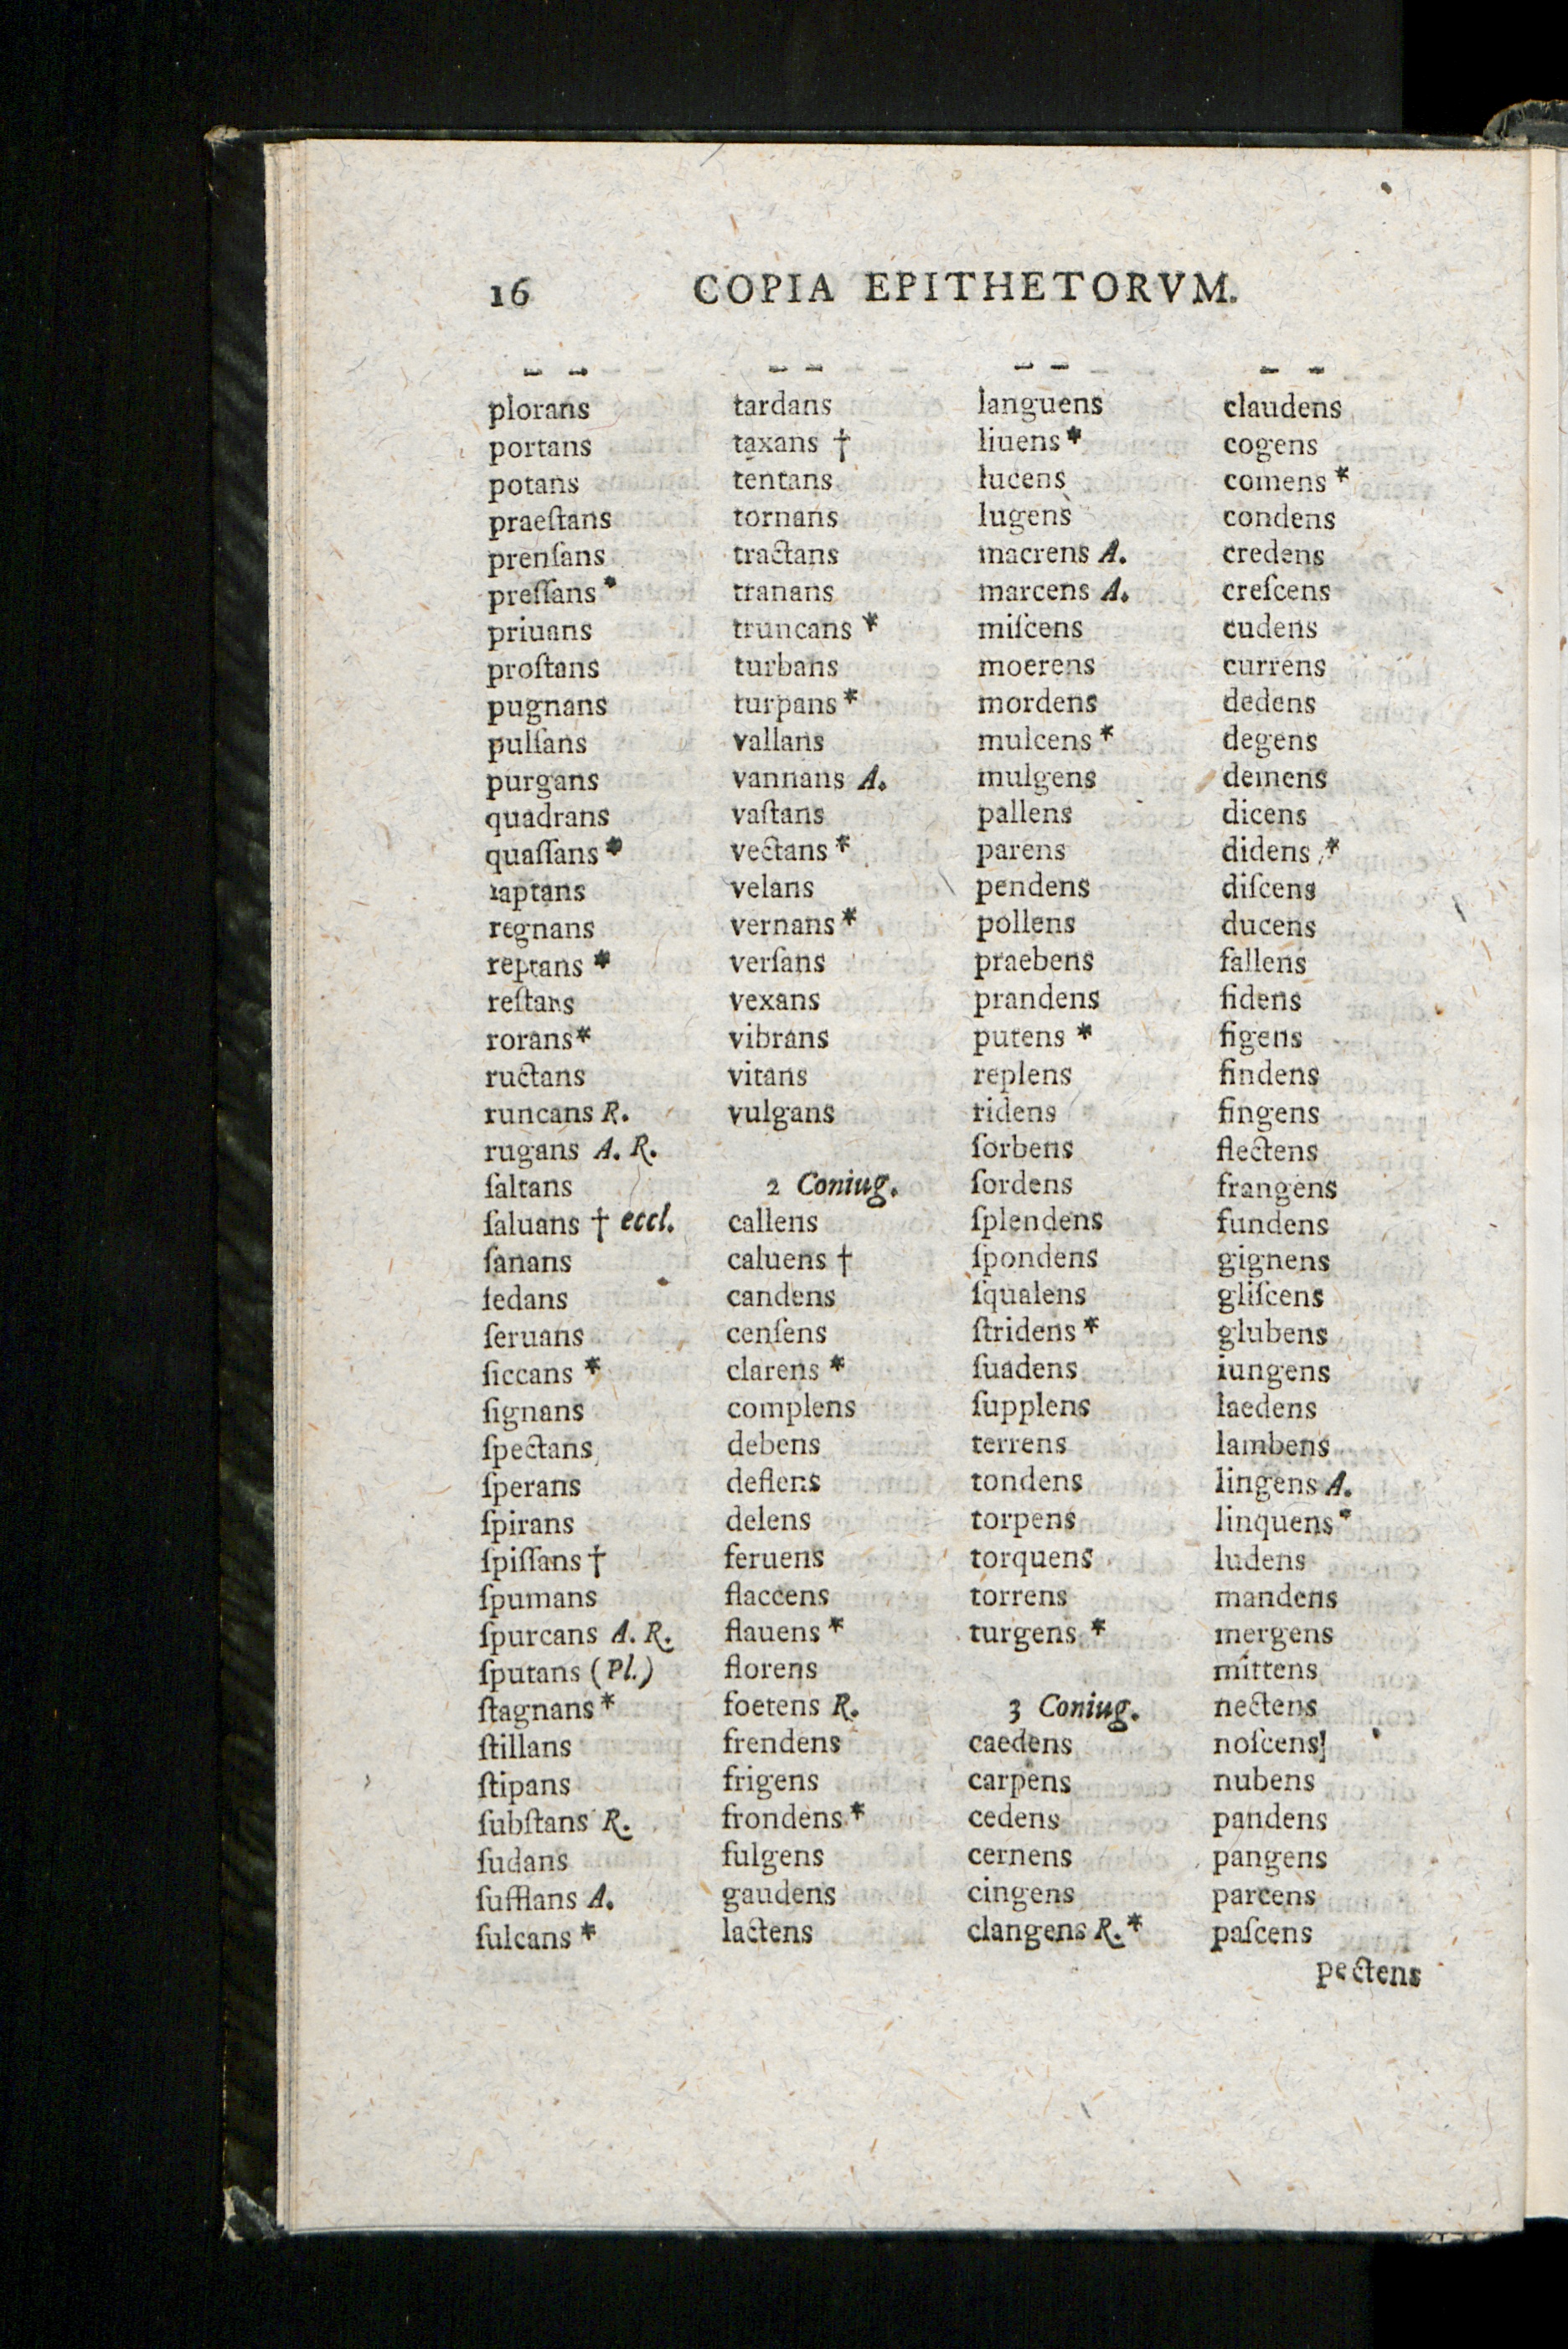 16 COPIA EPITHETORVM.
- -
plorans
portans
potans
praeſtans
prenſans
preſſans *
priuans
proſtans
pugnans
pulſans
purgans
quadrans
quaſſans *
raptans
regnans
reptans *
reſtans
rorans *
ructans
runcans R.
rugans A. R.
ſaltans
ſaluans † eccl.
ſanans
ſedans
ſeruans
ſiccans *
ſignans
ſpectans
ſperans
ſpirans
ſpiſſans †
ſpumans
ſpurcans A. R.
ſputans (Pl.)
ſtagnans *
ſtillans
ſtipans
ſubſtans R.
ſudans
ſufflans A.
ſulcans *
- -
tardans
taxans †
tentans
tornans
tractans
tranans
truncans *
turbans
turpans *
vallans
vannans A.
vaſtans
vectans *
velans
vernans *
verſans
vexans
vibrans
vitans
vulgans
2 Coniug.
callens
caluens †
candens
cenſens
clarens *
complens
debens
deflens
delens
feruens
flaccens
flauens *
florens
foetens R.
frendens
frigens
frondens *
fulgens
gaudens
lactens
- -
languens
liuens *
lucens
lugens
macrens A.
marcens A.
miſcens
moerens
mordens
mulcens *
mulgens
pallens
parens
pendens
pollens
praebens
prandens
putens *
replens
ridens
ſorbens
ſordens
ſplendens
ſpondens
ſqualens
ſtridens *
ſuadens
ſupplens
terrens
tondens
torpens
torquens
torrens
turgens *
3 Coniug.
caedens
carpens
cedens
cernens
cingens
clangens R. *
- -
claudens
cogens
comens *
condens
credens
creſcens
cudens
currens
dedens
degens
demens
dicens
didens *
diſcens
ducens
fallens
fidens
figens
findens
fingens
flectens
frangens
fundens
gignens
gliſcens
glubens
iungens
laedens
lambens
lingens A.
linquens *
ludens
mandens
mergens
mittens
nectens
noſcens
nubens
pandens
pangens
parcens
paſcens
pectens